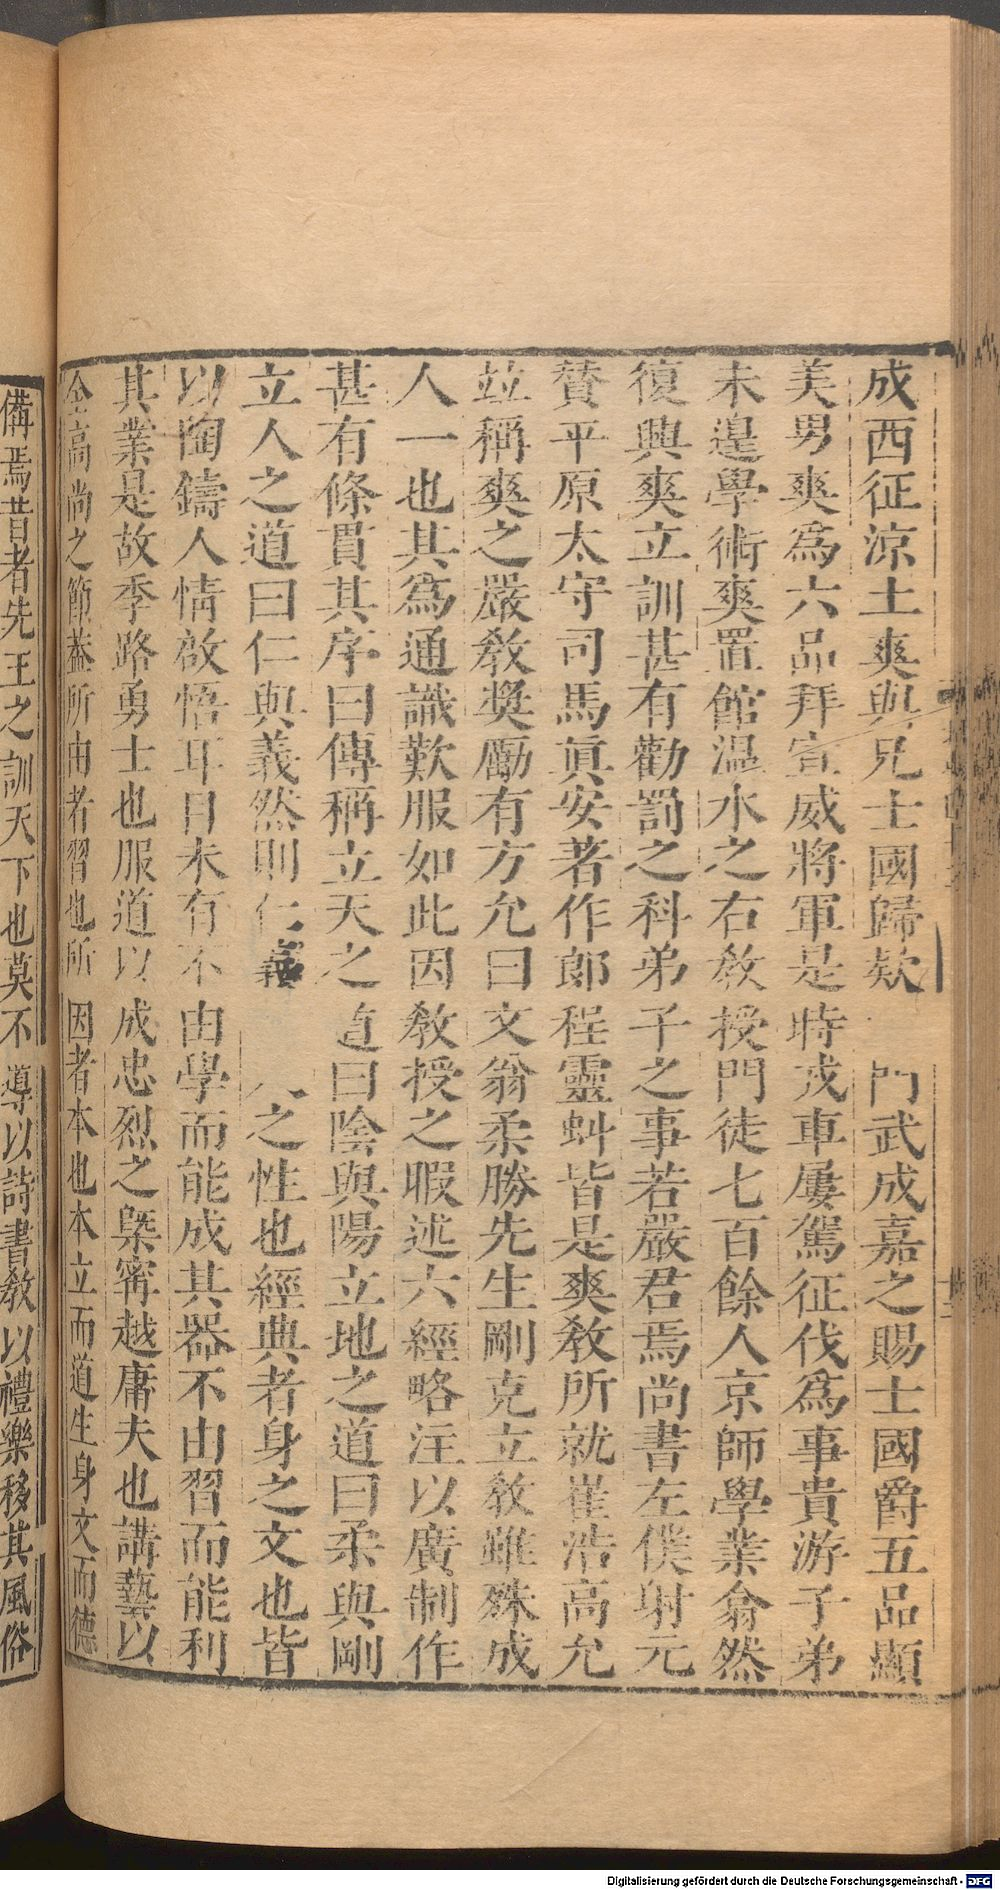 成西征涼土爽與兄士國歸欵 門武成嘉之賜士國爵五品顯
美男爽爲六品拜宣威將軍是時戎車屢駕征伐爲事貴游子弟
未遑學術爽置館温水之右敎授門徒七百餘人京師學業翕然
復興爽立訓甚有勸罰之科弟子之事若嚴君焉尚書左僕射元
贊平原太守司馬眞安著作郎程靈虯皆是爽敎所就崔浩高允
竝稱爽之嚴敎奬勵有方允曰文翁柔勝先生剛克立敎雖殊成
人一也其爲通識歎服如此因敎授之暇述六經略注以廣制作
甚有條貫其序曰傳稱立天之道曰陰與陽立地之道曰柔與剛
立人之道曰仁與義然則仁義 之性也經典者身之文也皆
以陶鑄人情啟悟耳目未有不由學而能成其器不由習而能利
其業是故季路勇士也服道以成忠烈之槩甯越庸夫也講藝以
全高尚之節葢所由者習也所因者本也本立而道生身文而德
備焉昔者先王之訓天下也莫不導以詩書敎以禮樂移其風俗
Digitalisierung gefördert durch die Deutsche Forschungsgemeinschaft - DFG